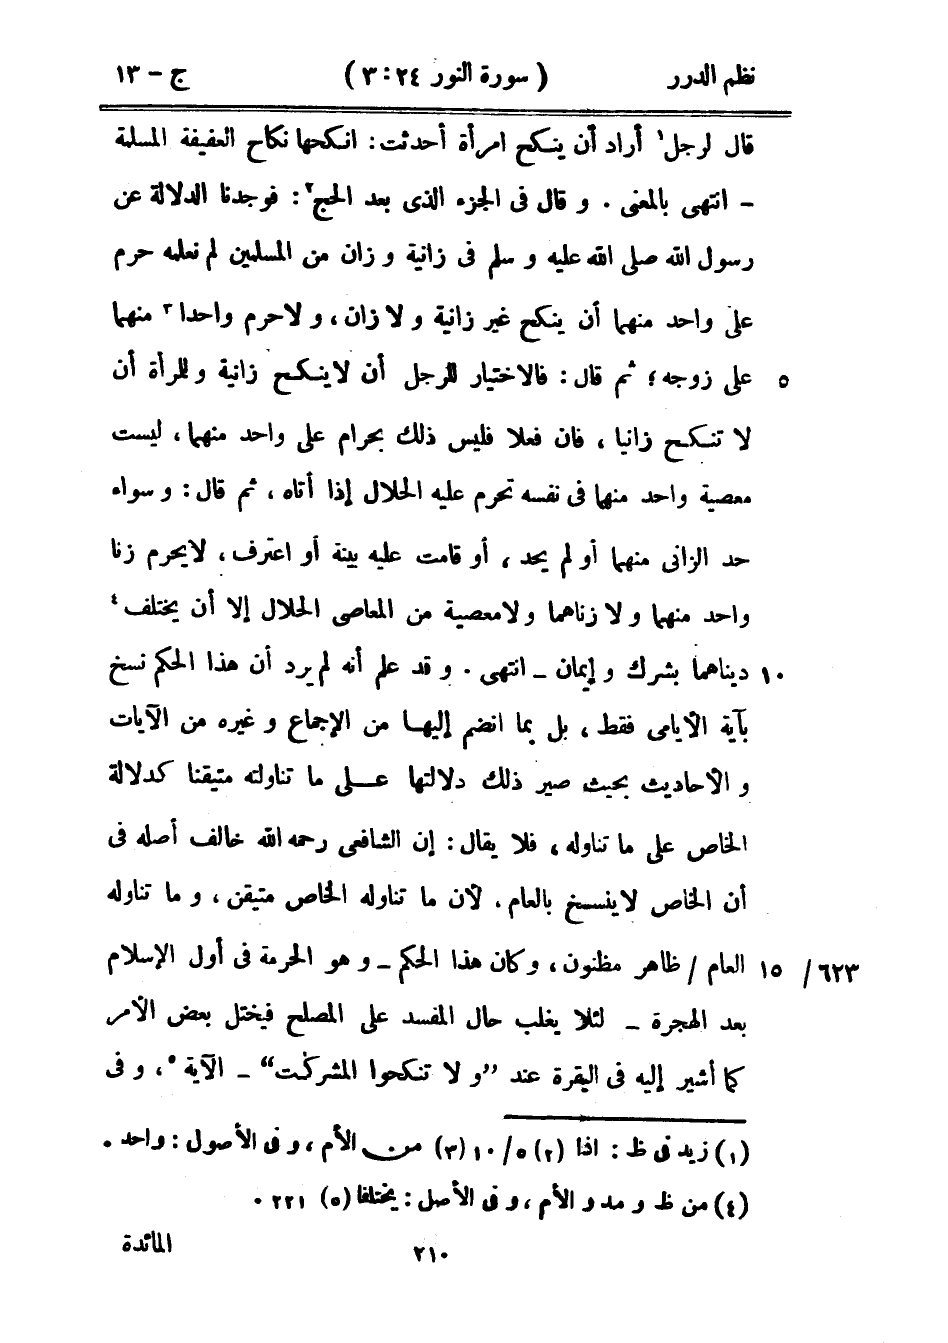 نظم الدرر ( سورة النور ٢٤ : ٣ ) ج – ١٣
قال لرجل ١ أراد أن ينكح امرأة أحدثت : انكحها نكاح العفيفة المسلمة
– انتهى بالمعنى . و قال فى الجزء الذى بعد الحج ٢ : فوجدنا الدلالة عن
رسول الله صلى الله عليه و سلم فى زانية و زان من المسلمين لم نعلمه حرم
على واحد منهما أن ينكح غير زانية و لا زان ، و لا حرم واحدا ٣ منهما
٥ على زوجه ؛ ثم قال : فالاختيار للرجل أن لا ينكح زانية و للرأة أن
لا تنكح زانيا ، فان فعلا فليس ذلك بحرام على واحد منهما ، ليست
معصية واحد منهما فى نفسه تحرم عليه الحلال إذا أتاه ، ثم قال : و سواء
حد الزانى منهما أو لم يحد ، أو قامت عليه بينة أو اعترف ، لا يحرم زنا
واحد منهما و لا زناهما و لا معصية من المعاصى الحلال إلا أن يختلف ٤
١٠ ديناهما بشرك و إيمان – انتهى . و قد علم أنه لم يرد أن هذا الحكم نسخ
بآية الأيامى فقط ، بل بما انضم إليها من الإجماع و غيره من الآيات
و الأحاديث بحيث صير ذلك دلالتها على ما تناولته متيقنا كدلالة
الخاص على ما تناوله ، فلا يقال : إن الشافعى رحمه الله خالف أصله فى
أن الخاص لا ينسخ بالعام ، لأن ما تناوله الخاص متيقن ، و ما تناوله
٦٢٣ / ١٥ العام / ظاهر مظنون ، و كان هذا الحكم – و هو الحرمة فى أول الإسلام
بعد الهجرة – لئلا يغلب حال المفسد على المصلح فيختل بعض الأمر
كما أشير إليه فى البقرة عند ”و لا تنكحوا المشركٰت“ – الآية ٥ ، و فى
(١) زيد فى ظ : اذا (٢) ٥ / ١٠ (٣) من الأم ، و فى الأصول : واحد .
(٤) من ظ و مد و الأم ، و فى الأصل : يختلفا (٥) ٢٢١ .
المائدة
٢١٠